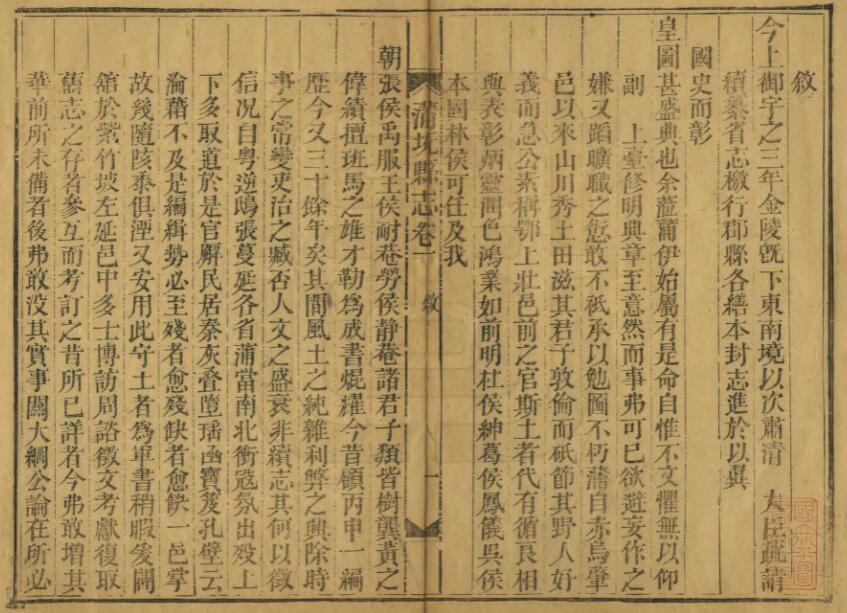 敘
今上御宇之三年金陵旣下東南境以次肅清　大臣疏請
續纂省志檄行郡縣各繕本封志進於以異
國史而彰
皇圖甚盛典也余蒞莆伊始屬有是命自惟不文懼無以仰
副　上臺修明典章至意然而事弗可已欲避妄作之
嫌又蹈曠職之愆敢不祗承以勉圖不朽蒲自赤烏肇
邑以來山川秀土田滋其君子敦倫而砥節其野人好
義而急公素稱鄂上壯邑前之官斯土者代有循良相
與表彰炳靈潤色鴻業如前明杜侯紳葛侯鳳儀吳侯
本固林侯可任及我
蒲圻縣志卷一　敘　一
朝張侯禹服王侯耐菴勞侯靜菴諸君子類皆樹龔黃之
偉績擅班馬之雄才勒爲成書焜燿今昔顧丙申一編
歷今又三十餘年矣其間風土之純雜利弊之興除時
事之常變吏治之臧否人文之盛衰非續志其何以徵
信况自粤逆鴟張蔓延各省蒲當南北衝寇氛出歿上
下多取道於是官廨民居秦灰叠墮瑤函寶笈孔壁云
淪藉不及是編緝勢必至殘者愈殘缺者愈缺一邑掌
故幾隨陔黍俱湮又安用此守土者爲軍書稍暇爰開
舘於紫竹坡左延邑中多士博訪周諮徵文考獻復取
舊志之存者參互而考訂之昔所已詳者今弗敢增其
華前所未備者後弗敢没其實事關大綱公論在所必